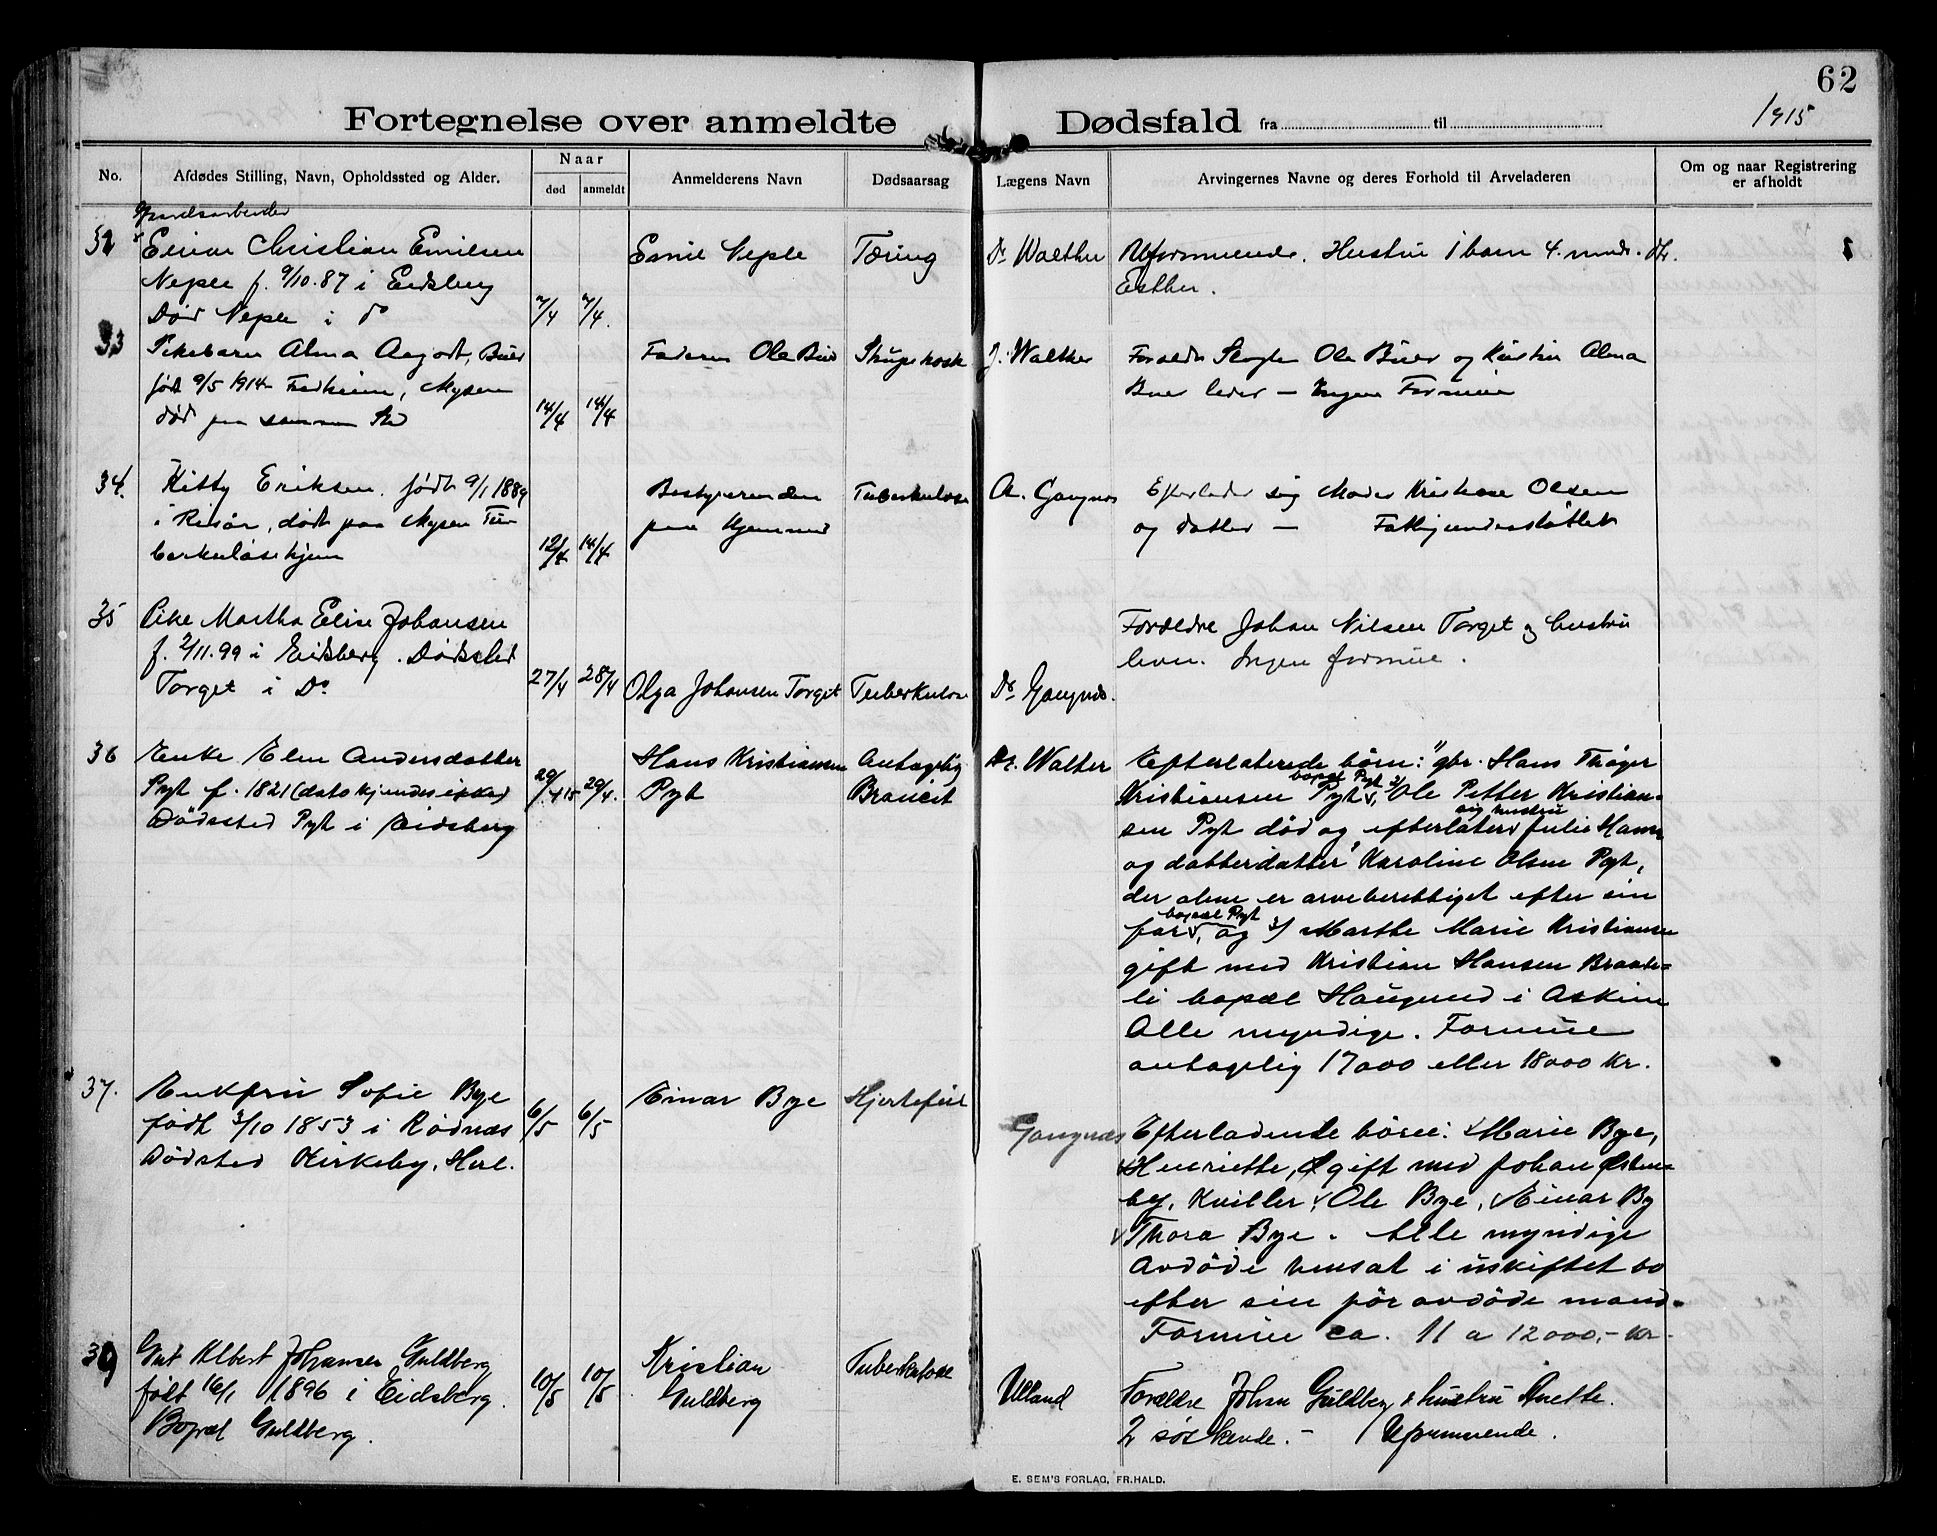 62
Fortegnelse over anmeldte Dødsfald fra til 1915
No.
Afdødes Stilling, Navn, Opholdssted og Alder.
Naar
død anmeldt
Anmelderens Navn
Dødsaarsag
Lægens Navn
Arvingernes Navne og deres Forhold til Arveladeren
Om og naar Registrering
er afholdt
32
Einar Christian Emilsen
Neple f. 9/10.87 i Eidsberg
Død Neple i do
7/4 7/4.
Emil Neple
Tæring
Dr Walther
Uformuende. Hustru 1 barn 4. mndr.
Esther.
33
Pikebarn Alma Buer
født 9/5 1914 Mysen
død paa samme Sted
14/4 14/4
Faderen Ole Buer
J. Walther
Ole Buer og Hustru Alma
Buer lever — Ingen Formue
34.
Kitty Eriksen. født 9/1 1889
i Risør, død paa Mysen Tu-
berkulosehjem
12/4 14/4
Bestyrerinden
paa Hjemmet
Tuberkulose
A. Gangnæs
Efterlader sig Moder Olsen
og datter — Fattigunderstøttet
35
Pike Martha Elise Johansen
f. 2/11.99 i Eidsberg. Dødssted
Torget i Do
27/4 28/4
Olga Johansen Torget
Tuberkulose
Dr Gangnæs.
Forældre Johan Nilsen Torget og hustru
lever. Ingen formue.
36
Enke Elen Andersdatter
Pyt f. 1821 (dato kjendes ikke)
Dødssted Pyt i Eidsberg
29/4 15 29/4.
Hans Kristiansen
Pyt
Antagelig
Dr. Walter
Efterlaterede børn: 1) gbr. Hans Thøger
Kristiansen bopæl Pyt Pyt, 2) Ole Petter Kristian-
sen Pyt død og efterlater sig hustru Julie
og datterdatter Karoline Olsen Pyt,
der alene er arveberettiget efter sin
far bopæl Pyt, og 3) Marthe Marie Kristiansen
gift med Kristian Hansen Braate-
li bopæl Haugerud i Askim
Alle myndige. Formue
antagelig 17000 eller 18000 Kr.
37.
Enkefru Sofie Bye
født 3/10 1853 i Rødnæs
Dødsted Kirkeby, Herl.
6/5 6/5
Einar Bye
Hjertefeil
Gangnæs
Efterladende børn: Marie Bye,
Henriette, gift med Johan Østen-
by, Kviller, Ole Bye, Einar By
Thora Bye. Alle myndige
Avdøde hensat i uskiftet bo
efter sin før avdøde mand.
Formue ca. 11 a 12000,- Kr.
39
Gut Albert Johansen Guldberg
født 16/1 1896 i Eidsberg.
Bopæl Guldberg.
10/5 10/5
Kristian
Guldberg
Tuberkulose
Ulland
Forældre Johan Guldberg & hustru Anette.
2 søskende. - Uformuende.
E. SEM'S FORLAG, FR.HALD.